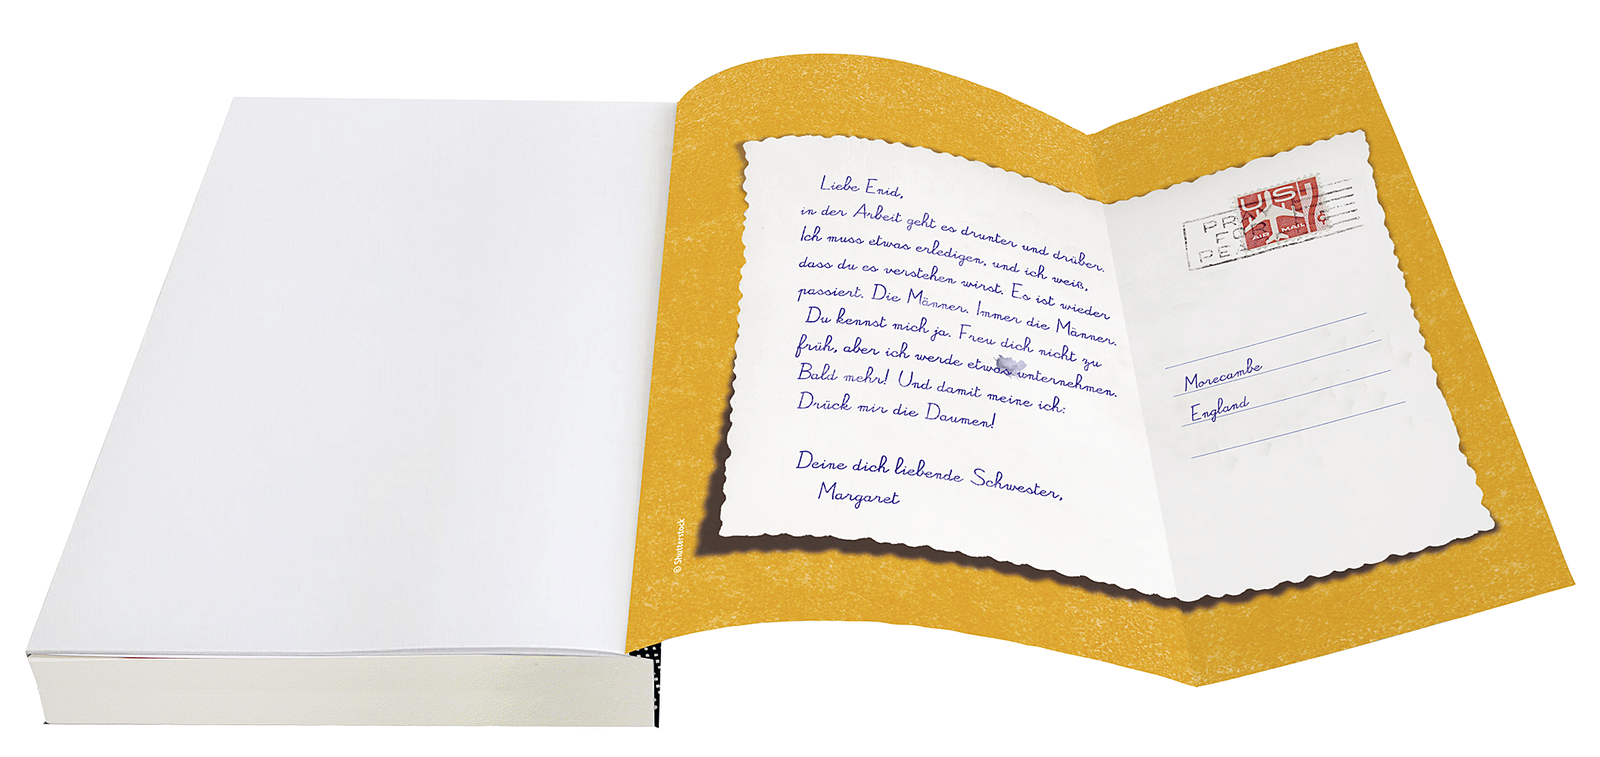 Liebe Enid,
in der Arbeit geht es drunter und drüber.
Ich muss etwas erledigen, und ich weiß,
dass du es verstehen wirst. Es ist wieder
passiert. Die Männer. Immer die Männer.
Du kennst mich ja. Freu dich nicht zu
früh, aber ich werde etwas unternehmen.
Bald mehr! Und damit meine ich:
Drück mir die Daumen!
Deine dich liebende Schwester,
Margaret
© Shutterstock
US 7¢
AIR MAIL
PR
FOR
PEA
Morecambe
England